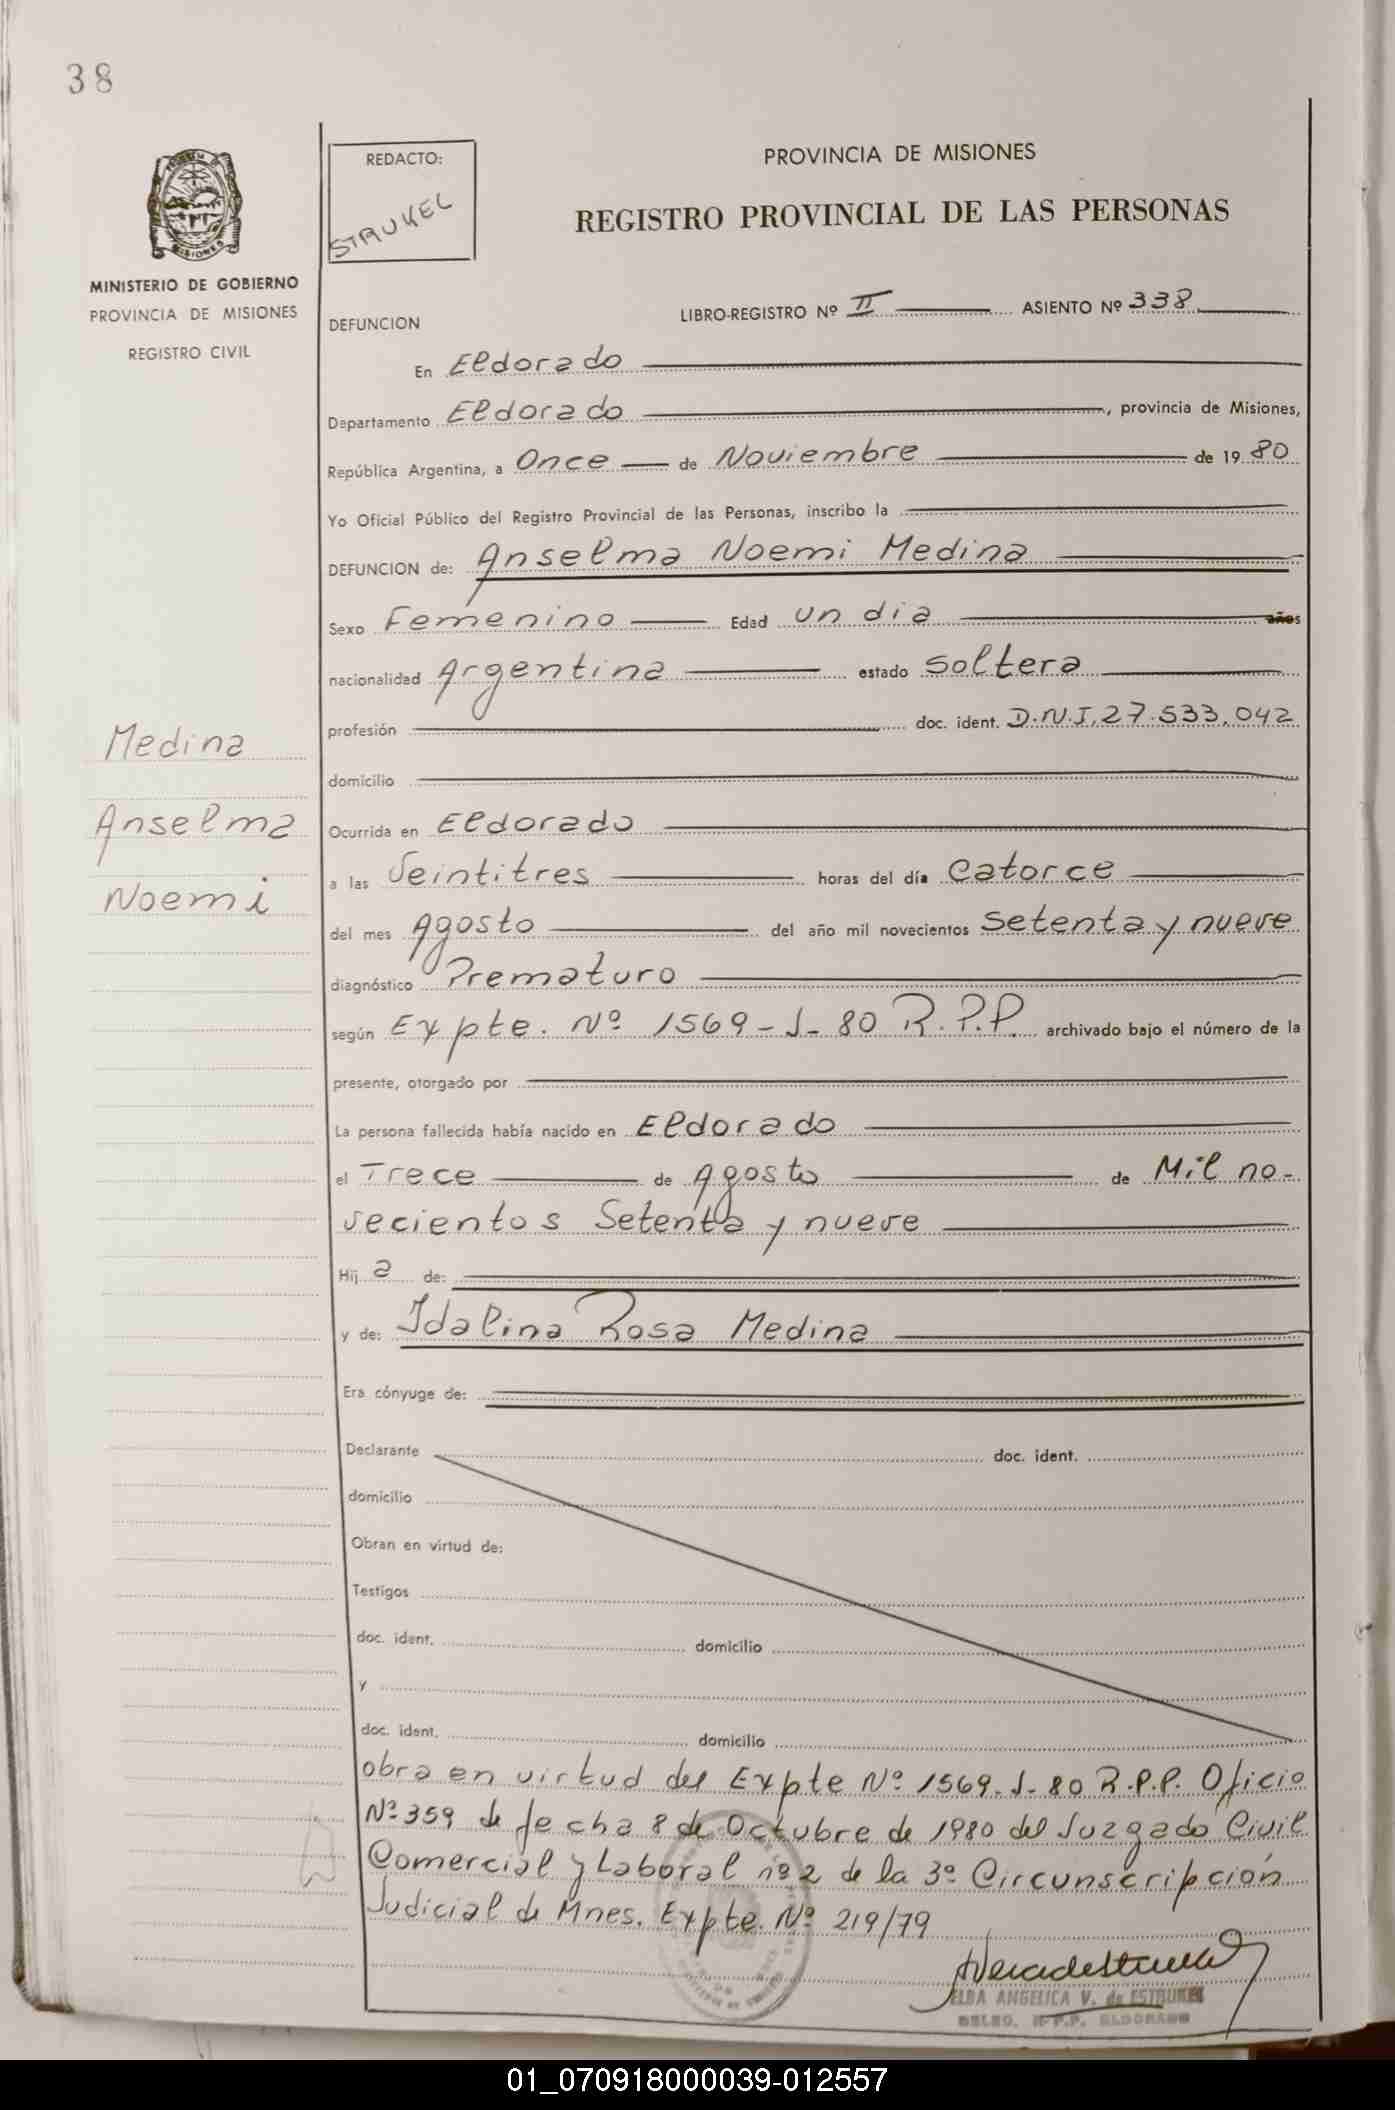 38
REDACTO:
STRUKEL
PROVINCIA DE MISIONES
REGISTRO PROVINCIAL DE LAS PERSONAS
MISIONES
MINISTERIO DE GOBIERNO
PROVINCIA DE MISIONES
REGISTRO CIVIL
DEFUNCION LIBRO-REGISTRO Nº II ASIENTO Nº 338
En Eldorado
Departamento Eldorado, provincia de Misiones,
República Argentina, a Once de Noviembre de 1980
Yo Oficial Público del Registro Provincial de las Personas, inscribo la
DEFUNCION de: Anselma Noemi Medina
Sexo Femenino Edad un dia años
nacionalidad Argentina estado Soltera
profesión doc. ident. D.N.I. 27.533.042
domicilio
Medina
Anselma
Noemi
Ocurrida en Eldorado
a las Veintitres horas del día Catorce
del mes Agosto del año mil novecientos Setenta y nueve
diagnóstico Prematuro
según Expte. Nº 1569-J-80 R.P.P. archivado bajo el número de la
presente, otorgado por
La persona fallecida había nacido en Eldorado
el Trece de Agosto de Mil no-
vecientos Setenta y nueve
Hij a de:
y de: Idalina Rosa Medina
Era cónyuge de:
Declarante doc. ident.
domicilio
Obran en virtud de:
Testigos
doc. ident. domicilio
y
doc. ident. domicilio
obra en virtud del Expte Nº 1569-J-80 R.P.P. Oficio
Nº 359 de fecha 8 de Octubre de 1980 del Juzgado Civil
Comercial y Laboral nº 2 de la 3º Circunscripción
Judicial de Mnes. Expte. Nº 219/79
ELBA ANGELICA V. de ESTRUKEL
R.P.P. ELDORADO
01_070918000039-012557